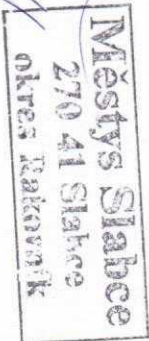 Městys Slabce
270 41 Slabce
okres Rakovník